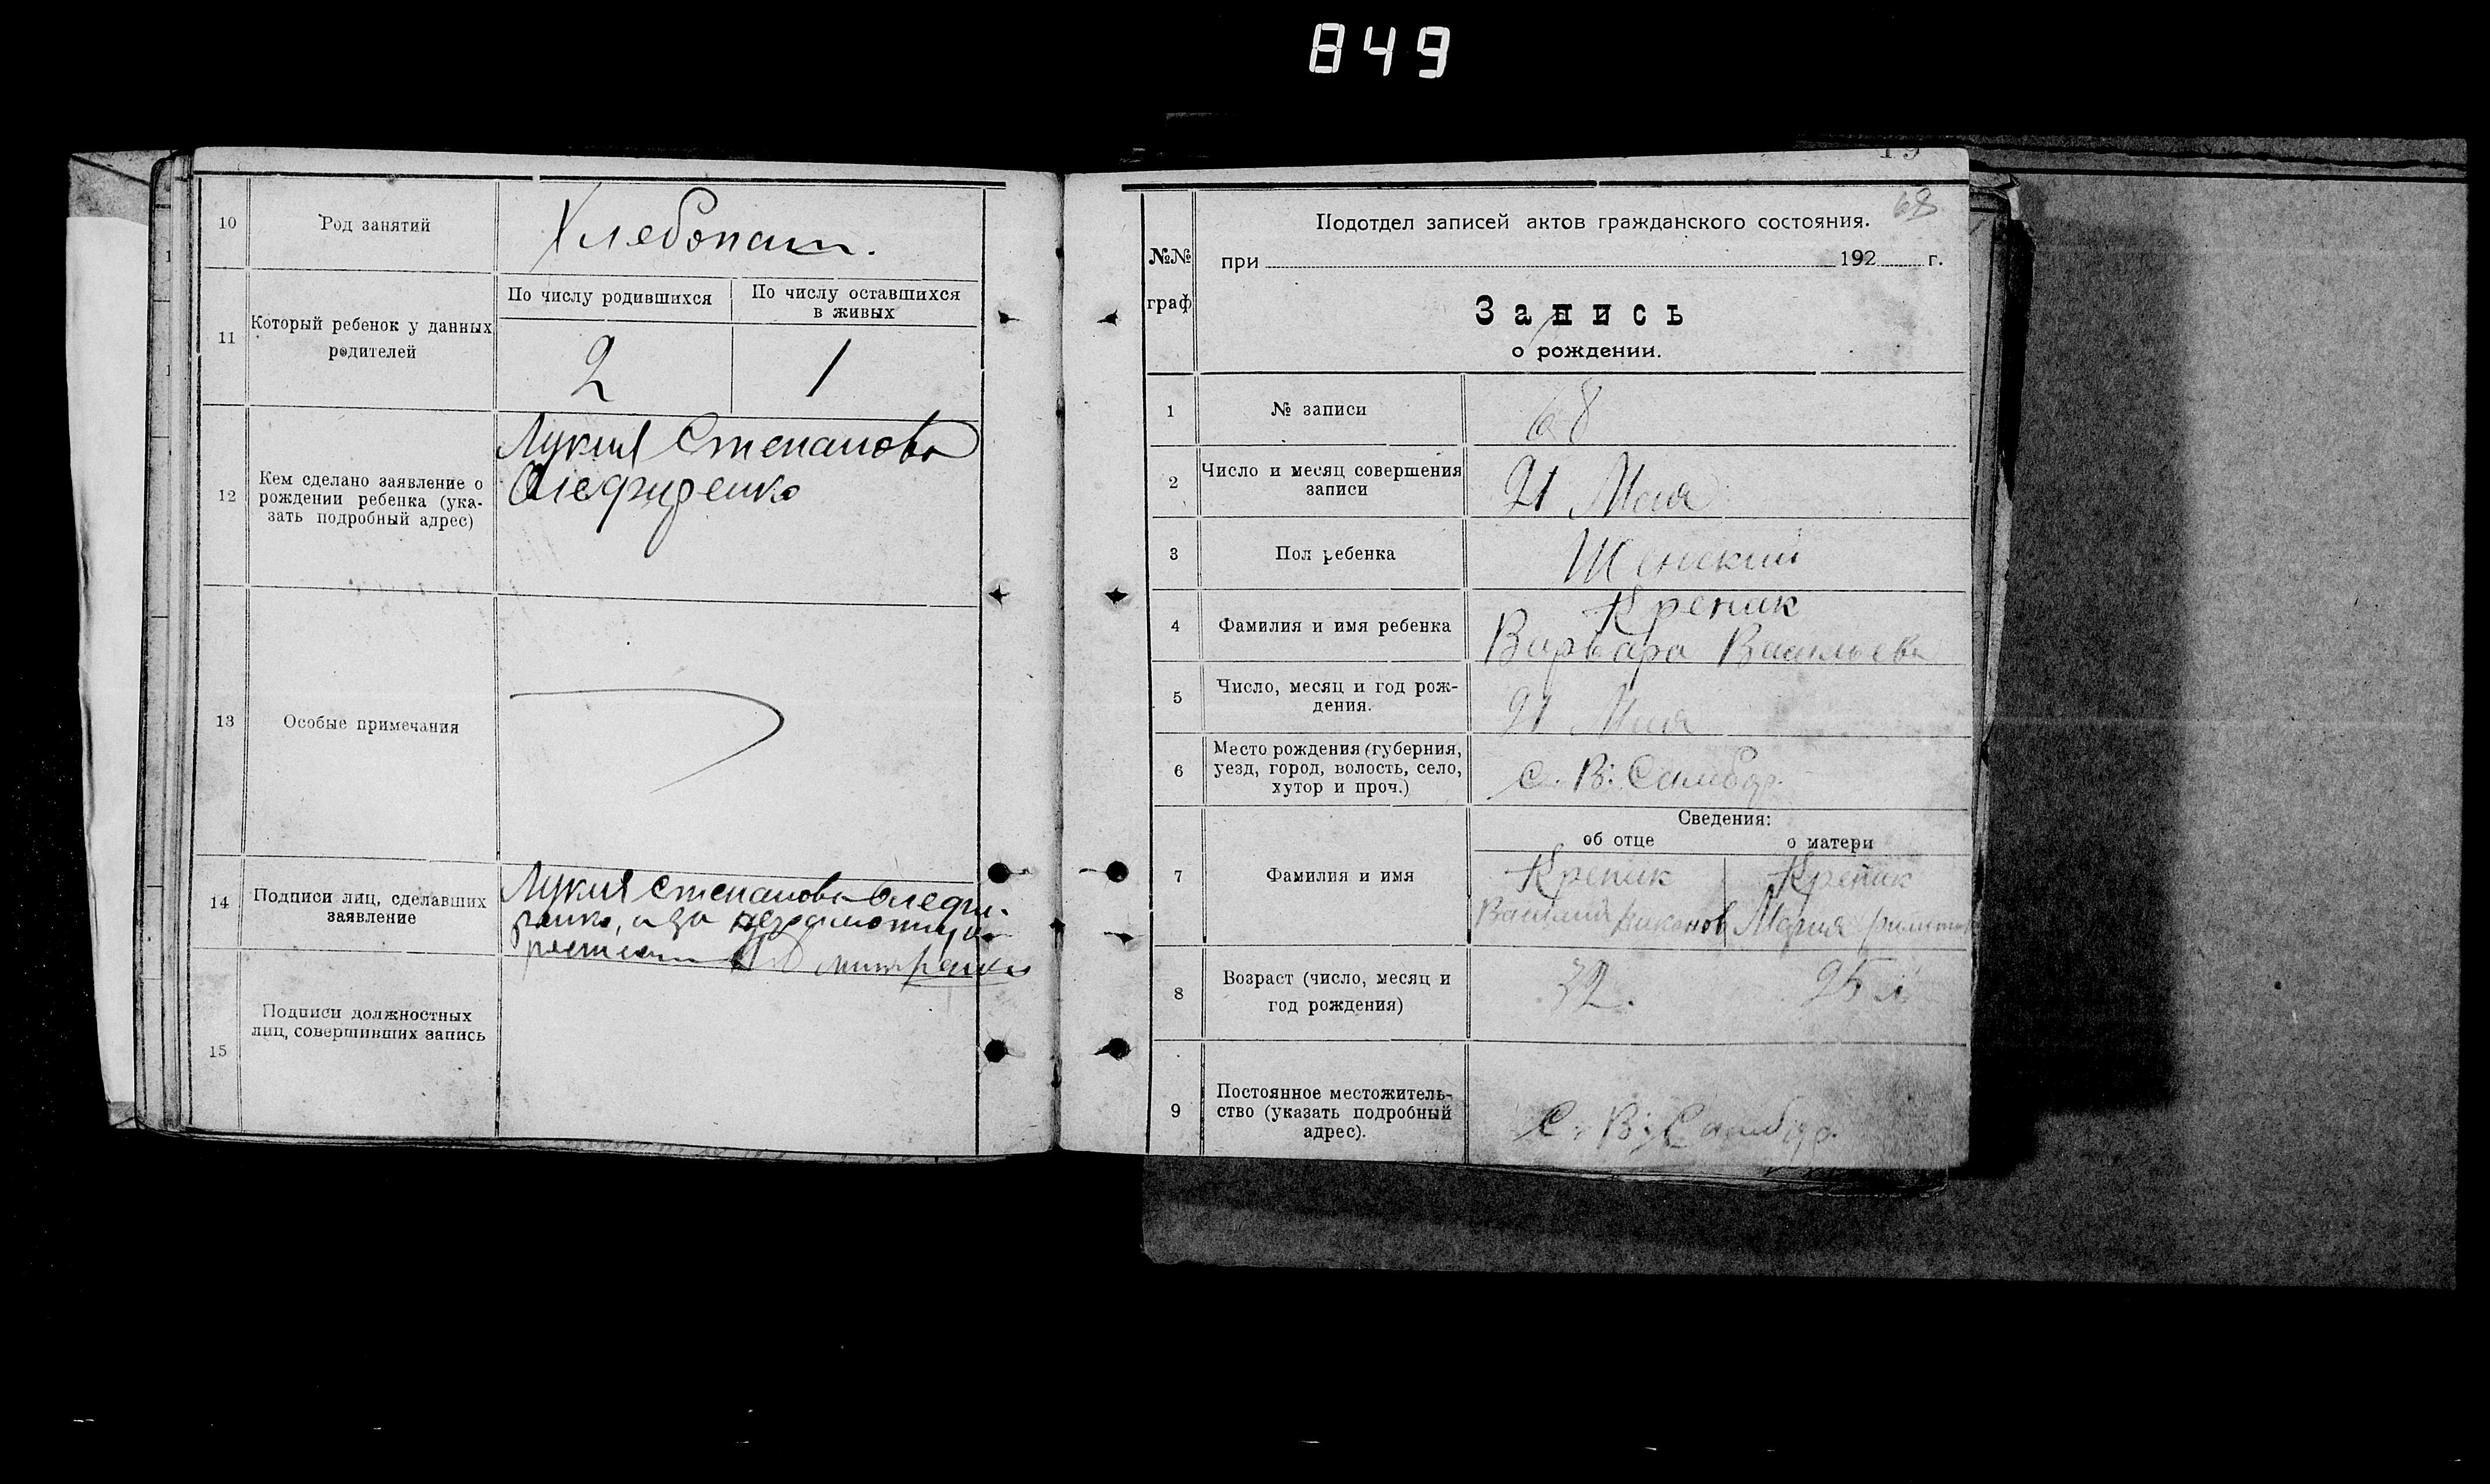 849
10
Род занятий
Хлебопаш.
11
Который ребенок у данных
родителей
По числу родившихся
По числу оставшихся
в живых
2
1
12
Кем сделано заявление о
рождении ребенка (ука-
зать подробный адрес)
Лукия Степанова
Олефиренко
13
Особые примечания
14
Подписи лиц, сделавших
заявление
Лукия Степанова Олефи-
ренко, а за неграмотную
15
Подписи должностных
лиц, совершивших запись
19
68
№№
граф
Подотдел записей актов гражданского состояния.
при 192 г.
Запись
о рождении.
1
№ записи
68
2
Число и месяц совершения
записи
21 Мая
3
Пол ребенка
Женский
4
Фамилия и имя ребенка
Крепак
Варвара Васильева
5
Число, месяц и год рож-
дения.
21 Мая
6
Место рождения (губерния,
уезд, город, волость, село,
хутор и проч.)
с. В. Самбор.
7
Фамилия и имя
Сведения:
об отце
о матери
Крепак
Василий Никонов
Крепак
Мария
8
Возраст (число, месяц и
год рождения)
32.
25 л.
9
Постоянное местожитель-
ство (указать подробный
адрес).
С. В. Самбор.